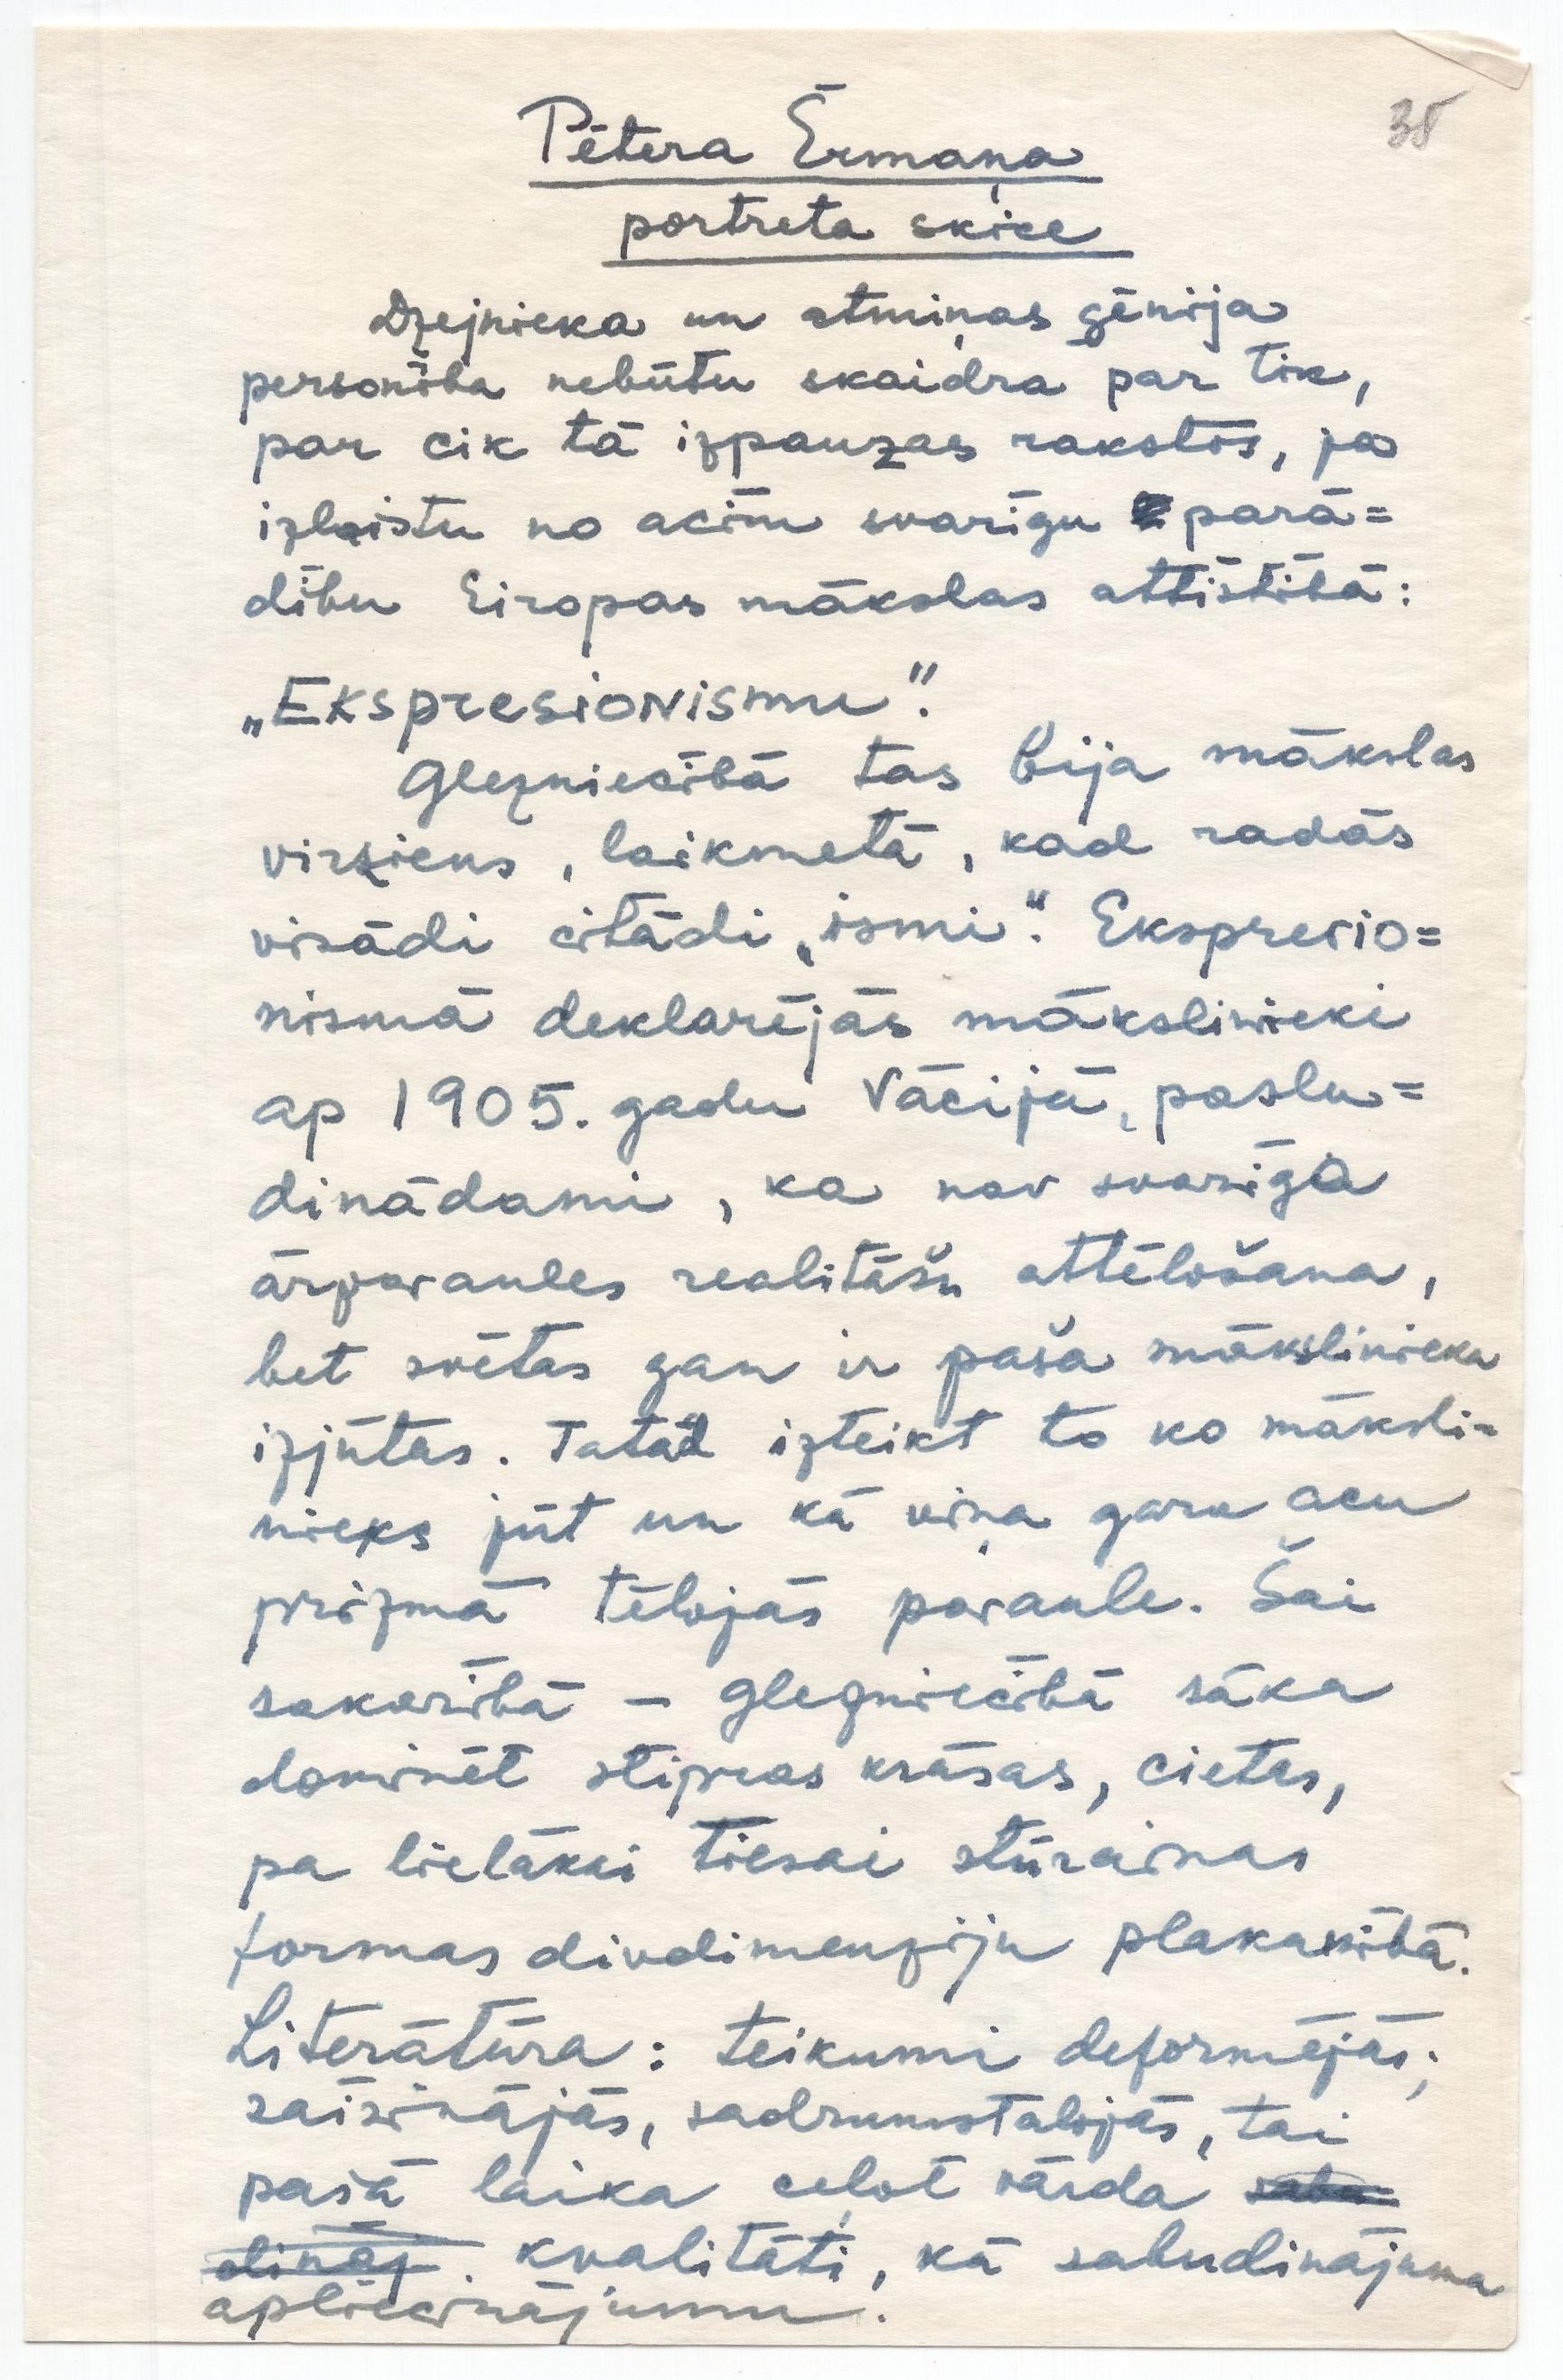 38
Pētera Ērmaņa
portreta skice
Dzejnieka un atmiņas ģēnija
personība nebūtu skaidra par tik,
par cik tā izpaužas rakstos, ja
izlaistu no acīm svarīgu parā=
dību Eiropas mākslas attīstībā:
„Ekspresionismu".
Glezniecībā tas bija mākslas
virziens, laikmetā, kad radās
visādi citādi „ismi". Ekspresio=
nismā deklarējās mākslinieki
ap 1905. gadu Vācijā, paslu=
dinādami, ka nav svarīga
ārpasaules realitāšu attēlošana,
bet svētas gan ir paša mākslinieka
izjūtas. Tatad izteikt to ko māksli=
nieks jūt un kā viņa garu acu
prizmā tēlojās pasaule. Šai
sakarībā – glezniecībā sāka
dominēt stipras krāsas, cietas,
pa lielākai tiesai stūrainas
formas divdimenziju plakanībā.
Literātūra: teikumi deformējās;
saīsinājās, sadrumstalojās, tai
pašā laika ceļot vārda
kvalitāti, kā saludinājuma
apliecinājumu.